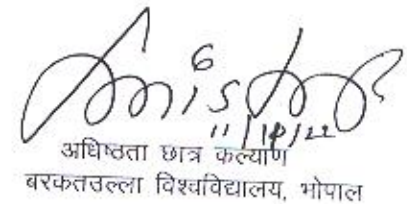 11/10/22
अधिष्ठता छात्र कल्याण
बरकतउल्ला विश्वविद्यालय, भोपाल